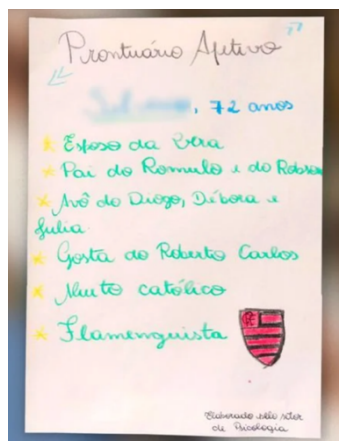 Prontuário Afetivo
, 72 anos
* Esposo da Vera
* Pai do Romulo e do Robson
* Avô do Diogo, Débora e
Julia.
* Gosta do Roberto Carlos
* Muito católico
* Flamenguista
Elaborado pelo setor
de Psicologia